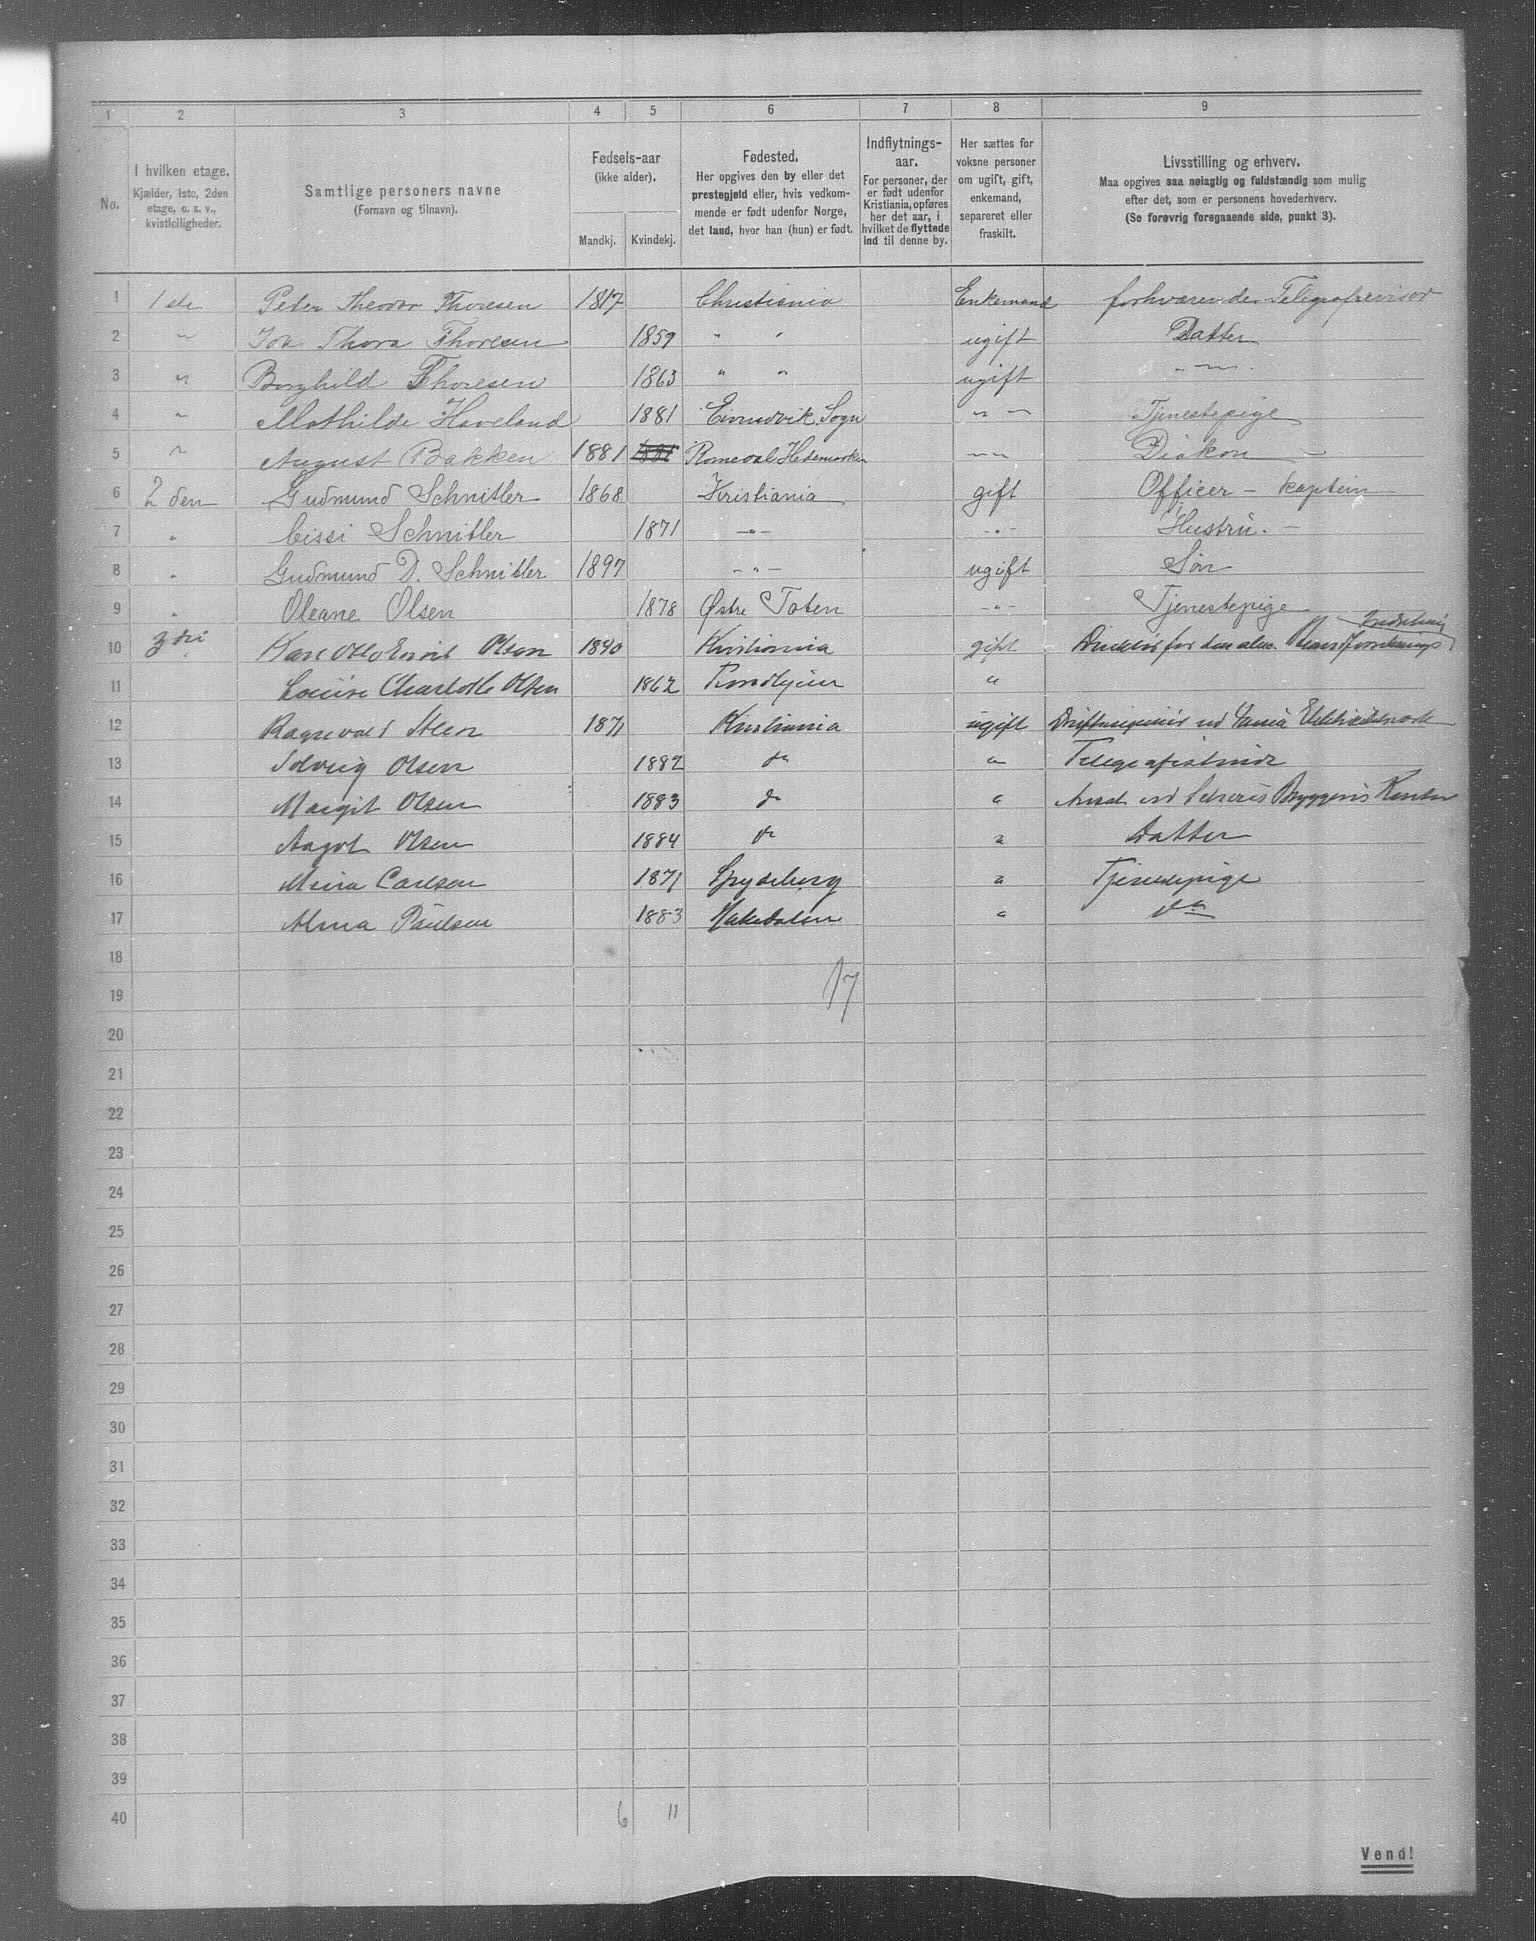 1 2 3 4 5 6 7 8 9
No.
I hvilken etage.
Kjælder, 1ste, 2den
etage, o. s. v.,
kvistleiligheder.
Samtlige personers navne
(Fornavn og tilnavn).
Fødsels-aar
(ikke alder).
Mandkj. Kvindekj.
Fødested.
Her opgives den by eller det
prestegjeld eller, hvis vedkom-
mende er født udenfor Norge,
det land, hvor han (hun) er født.
Indflytnings-
aar.
For personer, der
er født udenfor
Kristiania, opføres
her det aar, i
hvilket de flyttede
ind til denne by.
Her sættes for
voksne personer
om ugift, gift,
enkemand,
separeret eller
fraskilt.
Livsstilling og erhverv.
Maa opgives saa nøiagtig og fuldstændig som mulig
efter det, som er personens hovederhverv.
(Se forøvrig foregaaende side, punkt 3).
1 1ste Peter Theodor Thoresen 1817 Christiania Enkemand forhværende Telegrafrevisor
2 " Ida Thora Thoresen 1859 " " ugift Datter
3 " Borghild Thoresen 1863 " " ugift " "
4 " Mathilde Haveland 1881 Eivindvik Sogn " " Tjenestepige
5 " August Bakken 1881 Romedal Hedemarken " " Diakon
6 2den Gudmund Schnitler 1868 Kristiania gift Officer - kaptein
7 " Cissi Schnitler 1871 -"- -"- Hustru.
8 " Gudmund D. Schnitler 1897 -"- ugift Søn
9 " Oleane Olsen 1878 Østre Toten -"- Tjenestepige
10 3die Karl Otto Olsen 1840 Kristiania gift Direktør for den alm.
11 Louise Charlotte Olsen 1862 Trondhjem "
12 Ragnvald Steen 1871 Kristiania ugift
13 Solveig Olsen 1882 do " Telegrafistinde
14 Margit Olsen 1883 do " Ansat ved Schous Bryggeris Kontor
15 Aagot Olsen 1884 do " Datter
16 Mina Carlsen 1871 Spydeberg " Tjenestepige
17 Alma Paulsen 1883 Hakedalen " do
18
17
19
20
21
22
23
24
25
26
27
28
29
30
31
32
33
34
35
36
37
38
39
40 6 11
Vend!